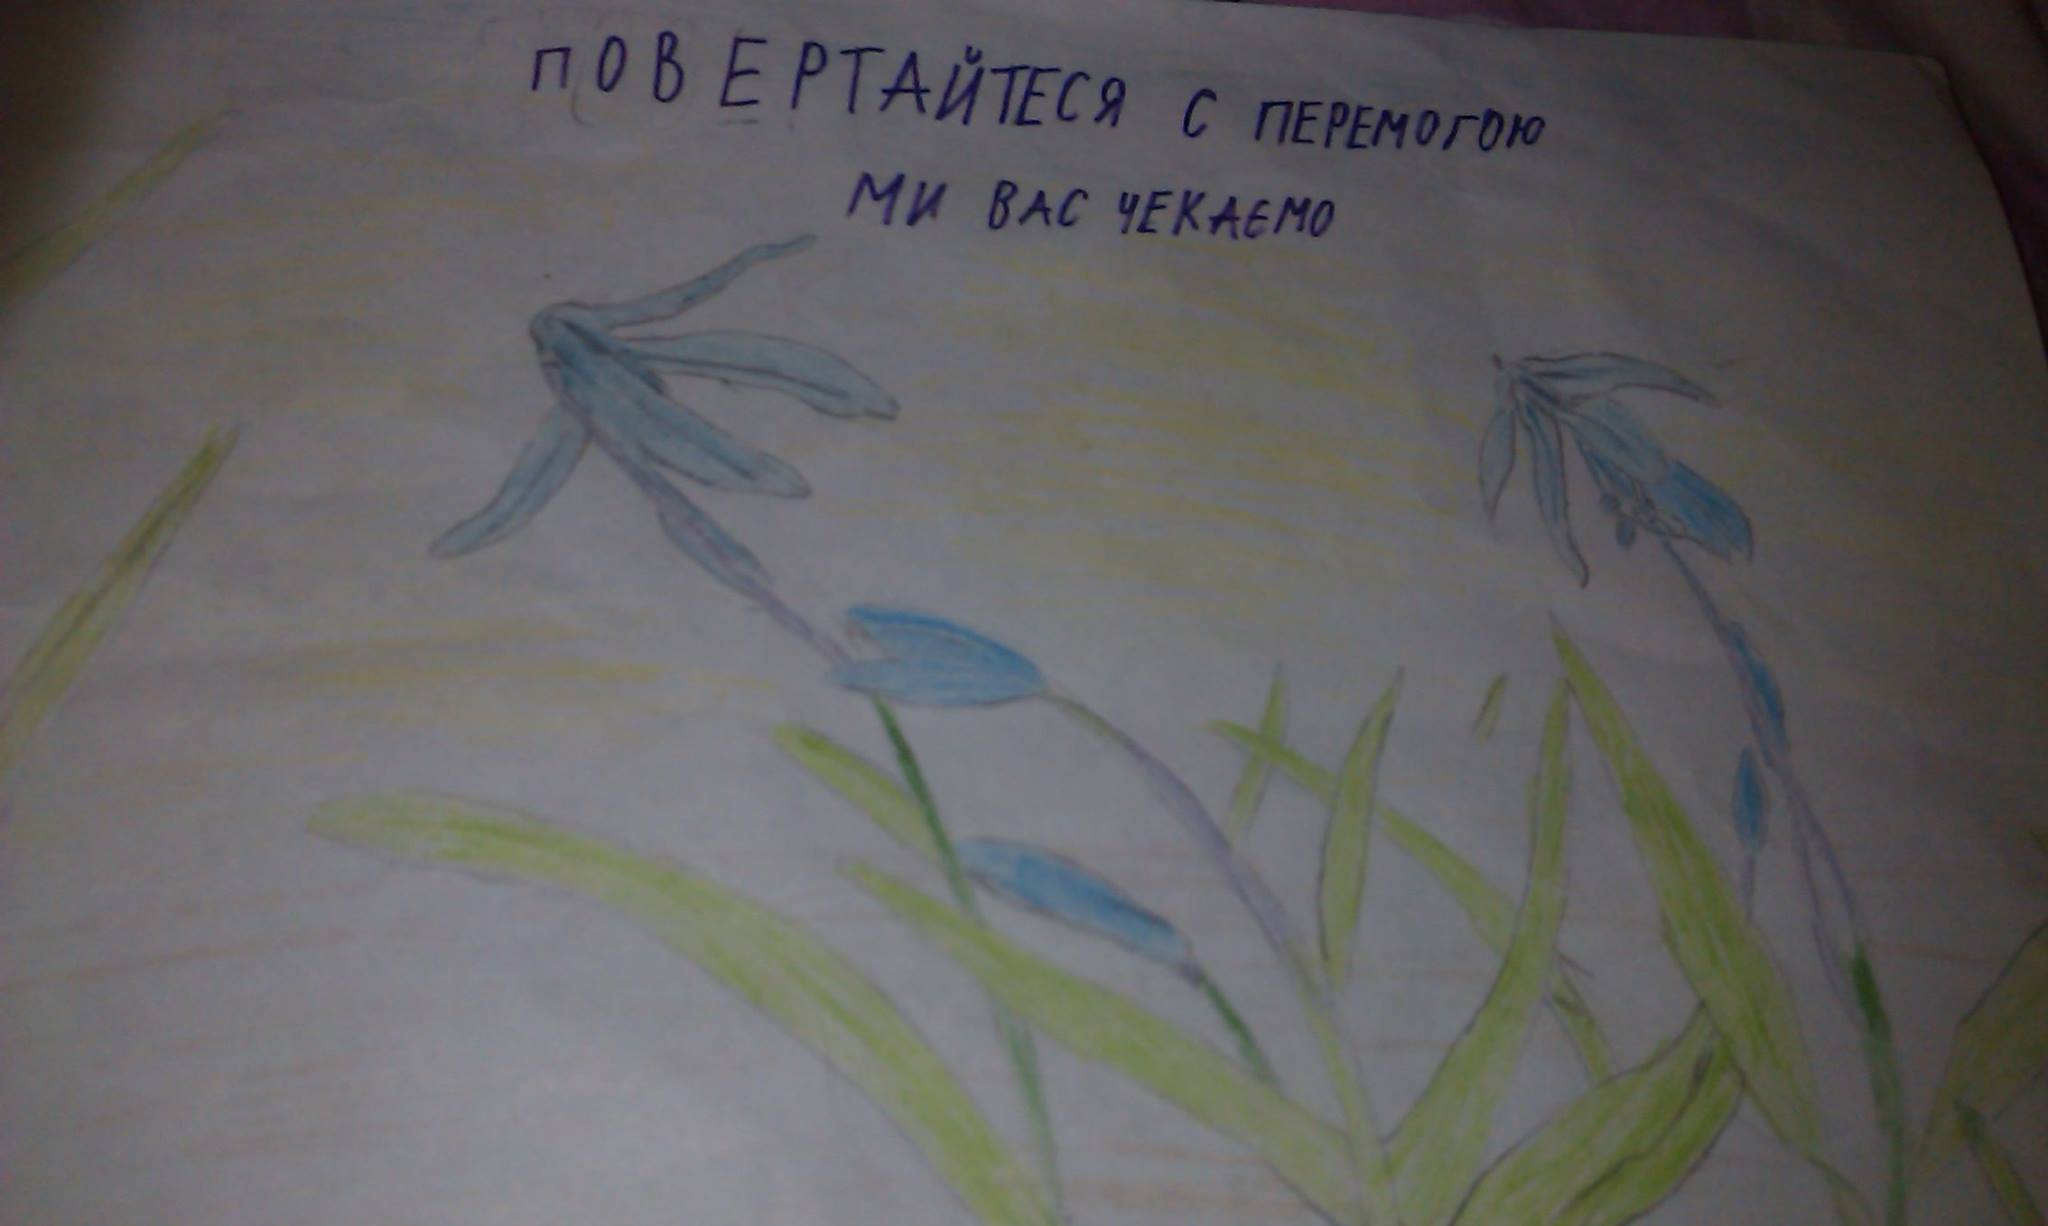 ПОВЕРТАЙТЕСЯ С ПЕРЕМОГОЮ
МИ ВАС ЧЕКАЄМО